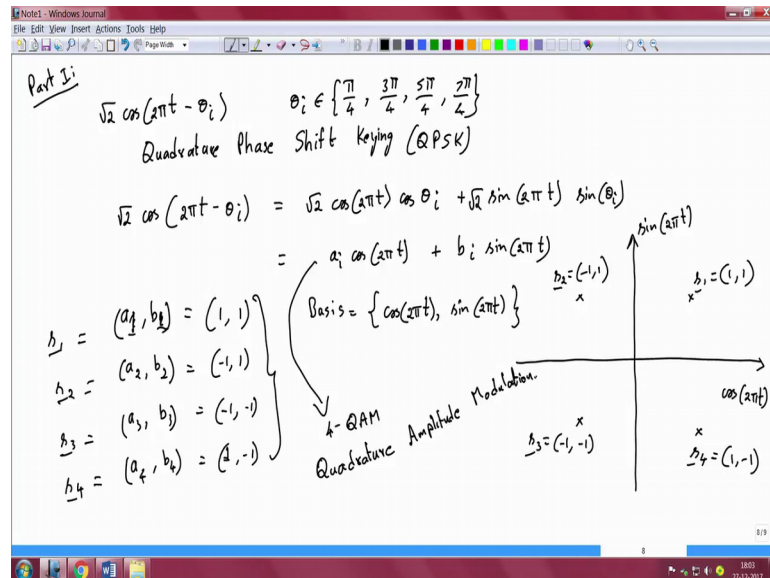 Note1 - Windows Journal
File Edit View Insert Actions Tools Help
Page Width
Part I:
√2 cos(2πt - θi) θi ∈ {π/4, 3π/4, 5π/4, 7π/4}
Quadrature Phase Shift Keying (QPSK)
√2 cos(2πt - θi) = √2 cos(2πt) cos θi + √2 sin(2πt) sin(θi)
= ai cos(2πt) + bi sin(2πt)
Basis = {cos(2πt), sin(2πt)}
s1 = (a1, b1) = (1, 1)
s2 = (a2, b2) = (-1, 1)
s3 = (a3, b3) = (-1, -1)
s4 = (a4, b4) = (1, -1)
4-QAM
Quadrature Amplitude Modulation.
sin(2πt)
s2 = (-1, 1)
s1 = (1, 1)
cos(2πt)
s3 = (-1, -1)
s4 = (1, -1)
8/9
8
18:03
27-12-2017